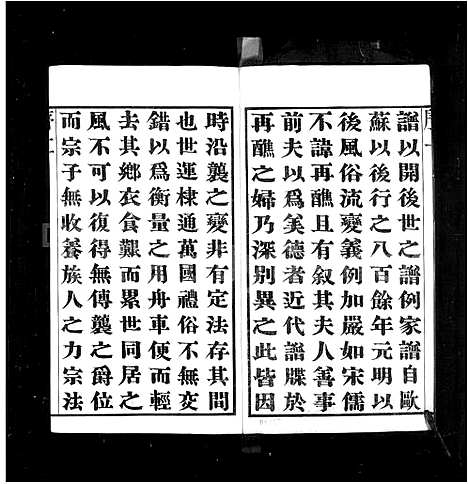 譜以開後世之譜例家譜自歐
蘇以後行之八百餘年元明以
後風俗流變義例加嚴如宋儒
不諱再醮且有叙其夫人善事
前夫以爲美德者近代譜牒於
再醮之婦乃深别異之此皆因
時沿襲之變非有定法存其間
也世運棣通萬國禮俗不無交
錯以爲衡量之用舟車便而輕
去其鄉衣食艱而累世同居之
風不可以復得無傳襲之爵位
而宗子無收養族人之力宗法